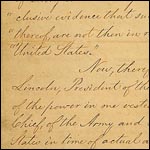 "clusive evidence that su
"thereof, are not then in r
"United States."
Now, there
Lincoln, President of the
of the power in me veste
Chief, of the Army and
States in time of actual a